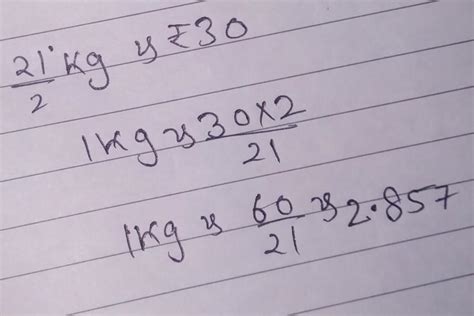 21/2 kg is ₹30
1kg is 30×2/21
1kg is 60/21 is 2.857